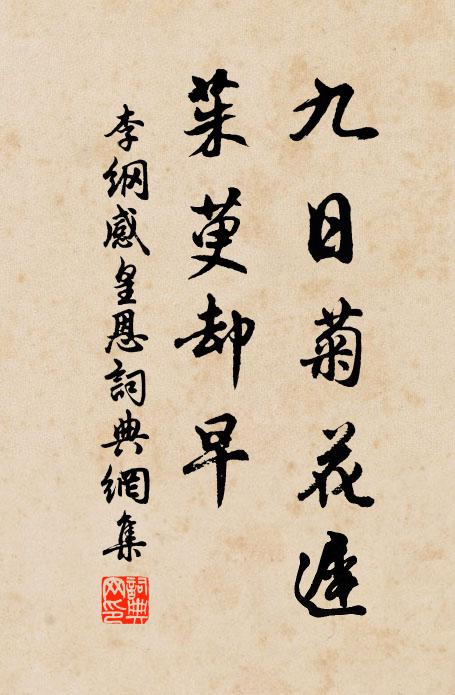 九日菊花遲
茱萸却早
李綱感皇恩詞典網集
詞典網印